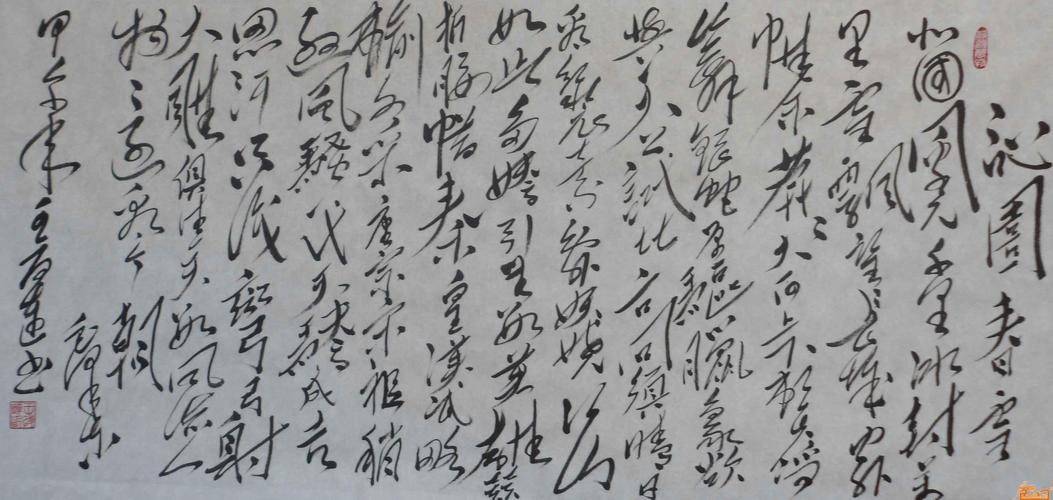 沁園春雪
北國風光千里冰封萬
里雪飄望長城内外
惟余莽莽大河上下頓失滔
山舞銀蛇原馳臘象欲
與天公試比高須晴日
看紅裝素裹分外妖嬈江山
如此多嬌引無數英雄競
折腰惜秦皇漢武略
輸文采唐宗宋祖稍
遜風騷一代天驕成吉
思汗只識彎弓射
大雕俱往矣數風流人
物還看今朝
毛澤東
甲午年王書